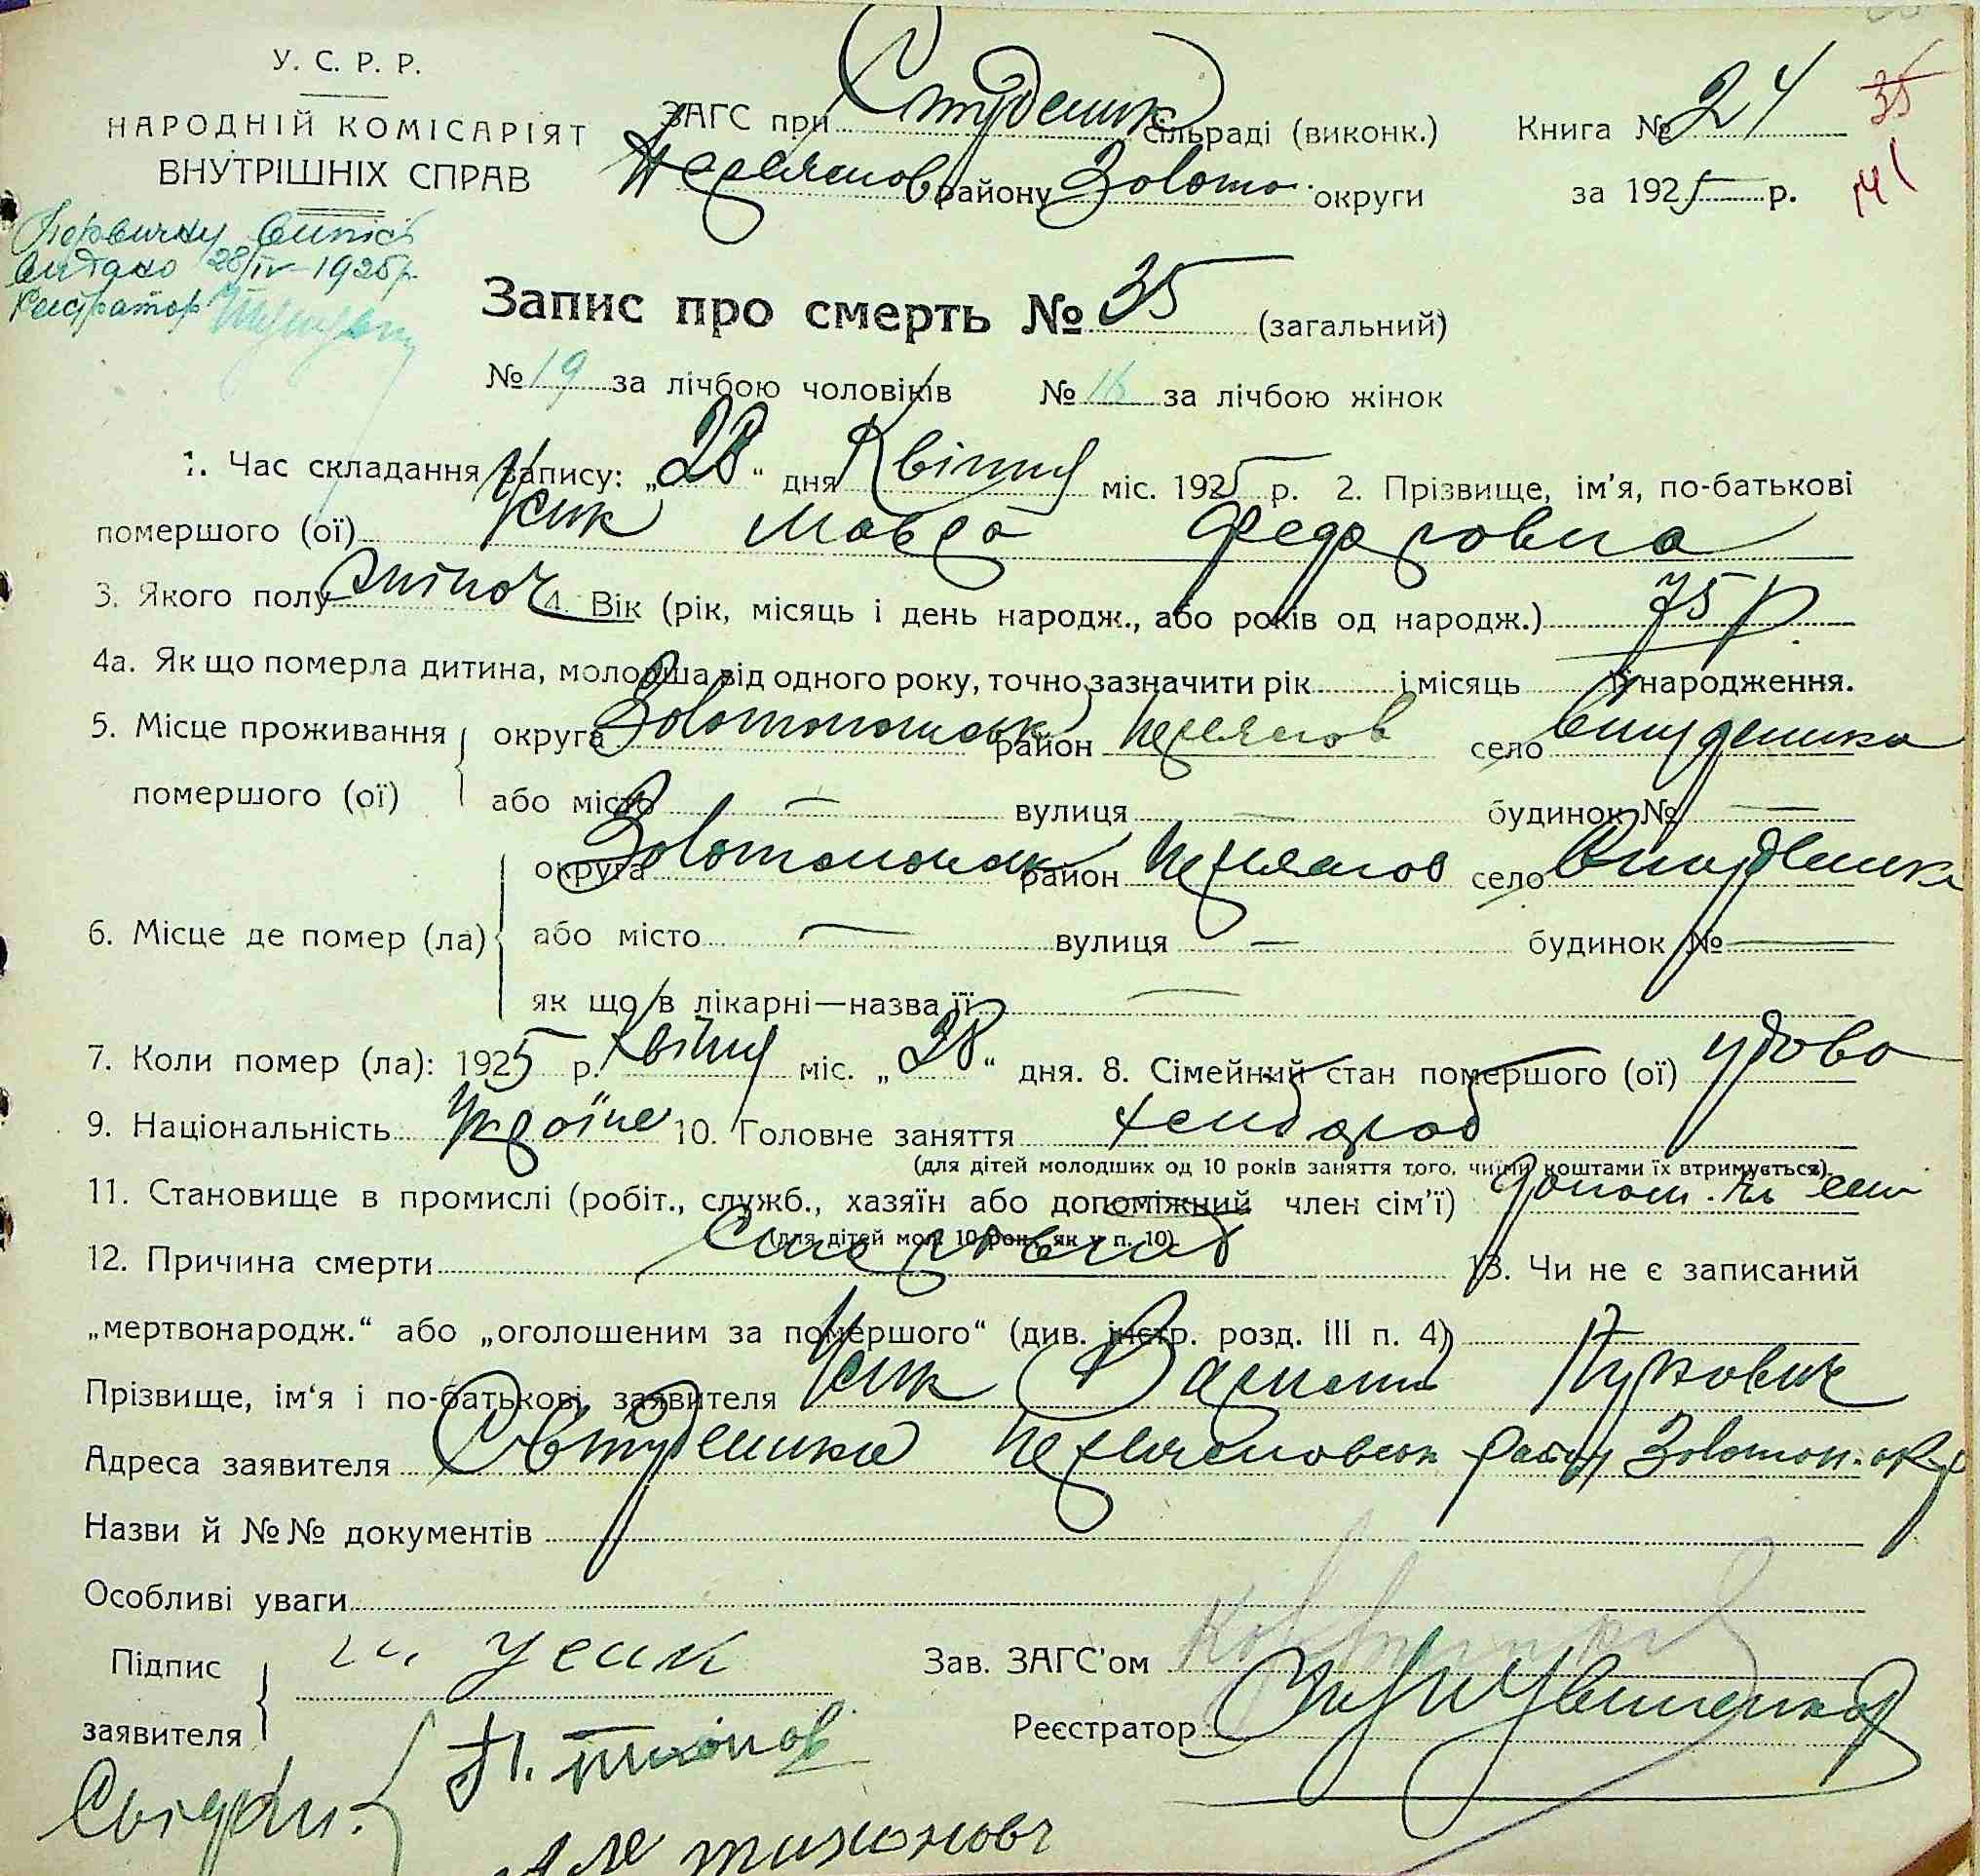 У. С. Р. Р.
НАРОДНІЙ КОМІСАРІЯТ
ВНУТРІШНІХ СПРАВ
ЗАГС при Студеник сільраді (виконк.) Книга № 24 35
Переяслов району Золото. округи за 1925 р.
Первичну випісь
видано 28/IV-1925 р.
Реєстратор
Запис про смерть № 35 (загальний)
№ 19 за лічбою чоловіків № 16 за лічбою жінок
1. Час складання запису: „28“ дня Квітня міс. 1925 р. 2. Прізвище, ім’я, по-батькові
помершого (ої) Усик Мавра Федоровна
3. Якого полу жіноч 4. Вік (рік, місяць і день народж., або років од народж.) 75 р.
4а. Як що померла дитина, молодша від одного року, точно зазначити рік і місяць її народження.
5. Місце проживання помершого (ої) округа Золотоношськ район Переяслов село Студеники
або місто — вулиця — будинок № —
6. Місце де помер (ла) округа Золотоношськ район Переяслов село Студеники
або місто — вулиця — будинок № —
як що в лікарні—назва її —
7. Коли помер (ла): 1925 р. Квітня міс. „28“ дня. 8. Сімейний стан помершого (ої) удова
9. Національність Україне 10. Головне заняття хлібороб
(для дітей молодших од 10 років заняття того, чиїми коштами їх втримується).
11. Становище в промислі (робіт., служб., хазяїн або допоміжний член сім’ї) допом. чл сем
(для дітей мол. 10 рок. як у п. 10)
12. Причина смерти 13. Чи не є записаний
„мертвонародж.“ або „оголошеним за помершого“ (див. інстр. розд. III п. 4)
Прізвище, ім‘я і по-батькові заявителя Усик Лукович
Адреса заявителя Студеники Переясловськ району Золотон. окр
Назви й №№ документів
Особливі уваги
Підпис заявителя Усик
Зав. ЗАГС’ом
Реєстратор
Свідки:
П. Тихонов
Тихонович